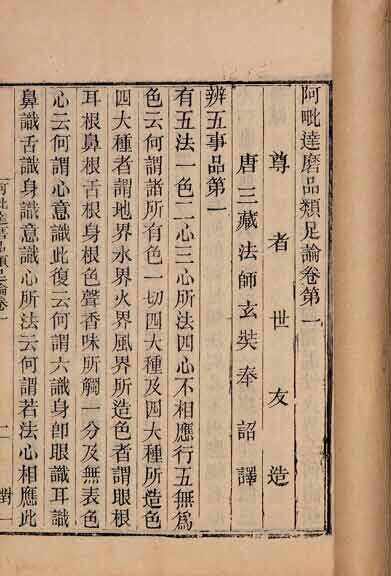 阿毗達磨品類足論卷第一
尊者世友造
唐三藏法師玄奘奉詔譯
辨五事品第一
有五法一色二心三心所法四心不相應行五無為
色云何謂諸所有色一切四大種及四大種所造色
四大種者謂地界水界火界風界所造色者謂眼根
耳根鼻根舌根身根色聲香味所觸一分及無表色
心云何謂心意識此復云何謂六識身卽眼識耳識
鼻識舌識身識意識心所法云何謂若法心相應此
阿毗達磨品類足論卷一
二
對一